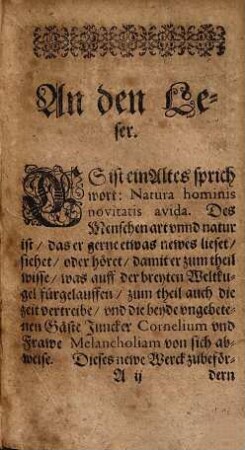 An den Le-
ser.
ES ist ein Altes sprich
wort: Natura hominis
novitatis avida. Des
Menschen art vnnd natur
ist / das er gerne etwas newes lieset /
siehet / oder höret / damit er zum theil
wisse / was auff der breyten Weltku-
gel fürgelauffen / zum theil auch die
zeit vertreibe / vnd die beyde vngebete-
nen Gäste Juncker Cornelium vnd
Frawe Melancholiam von sich ab-
weise. Dieses newe Werck zubeför-
A ij dern